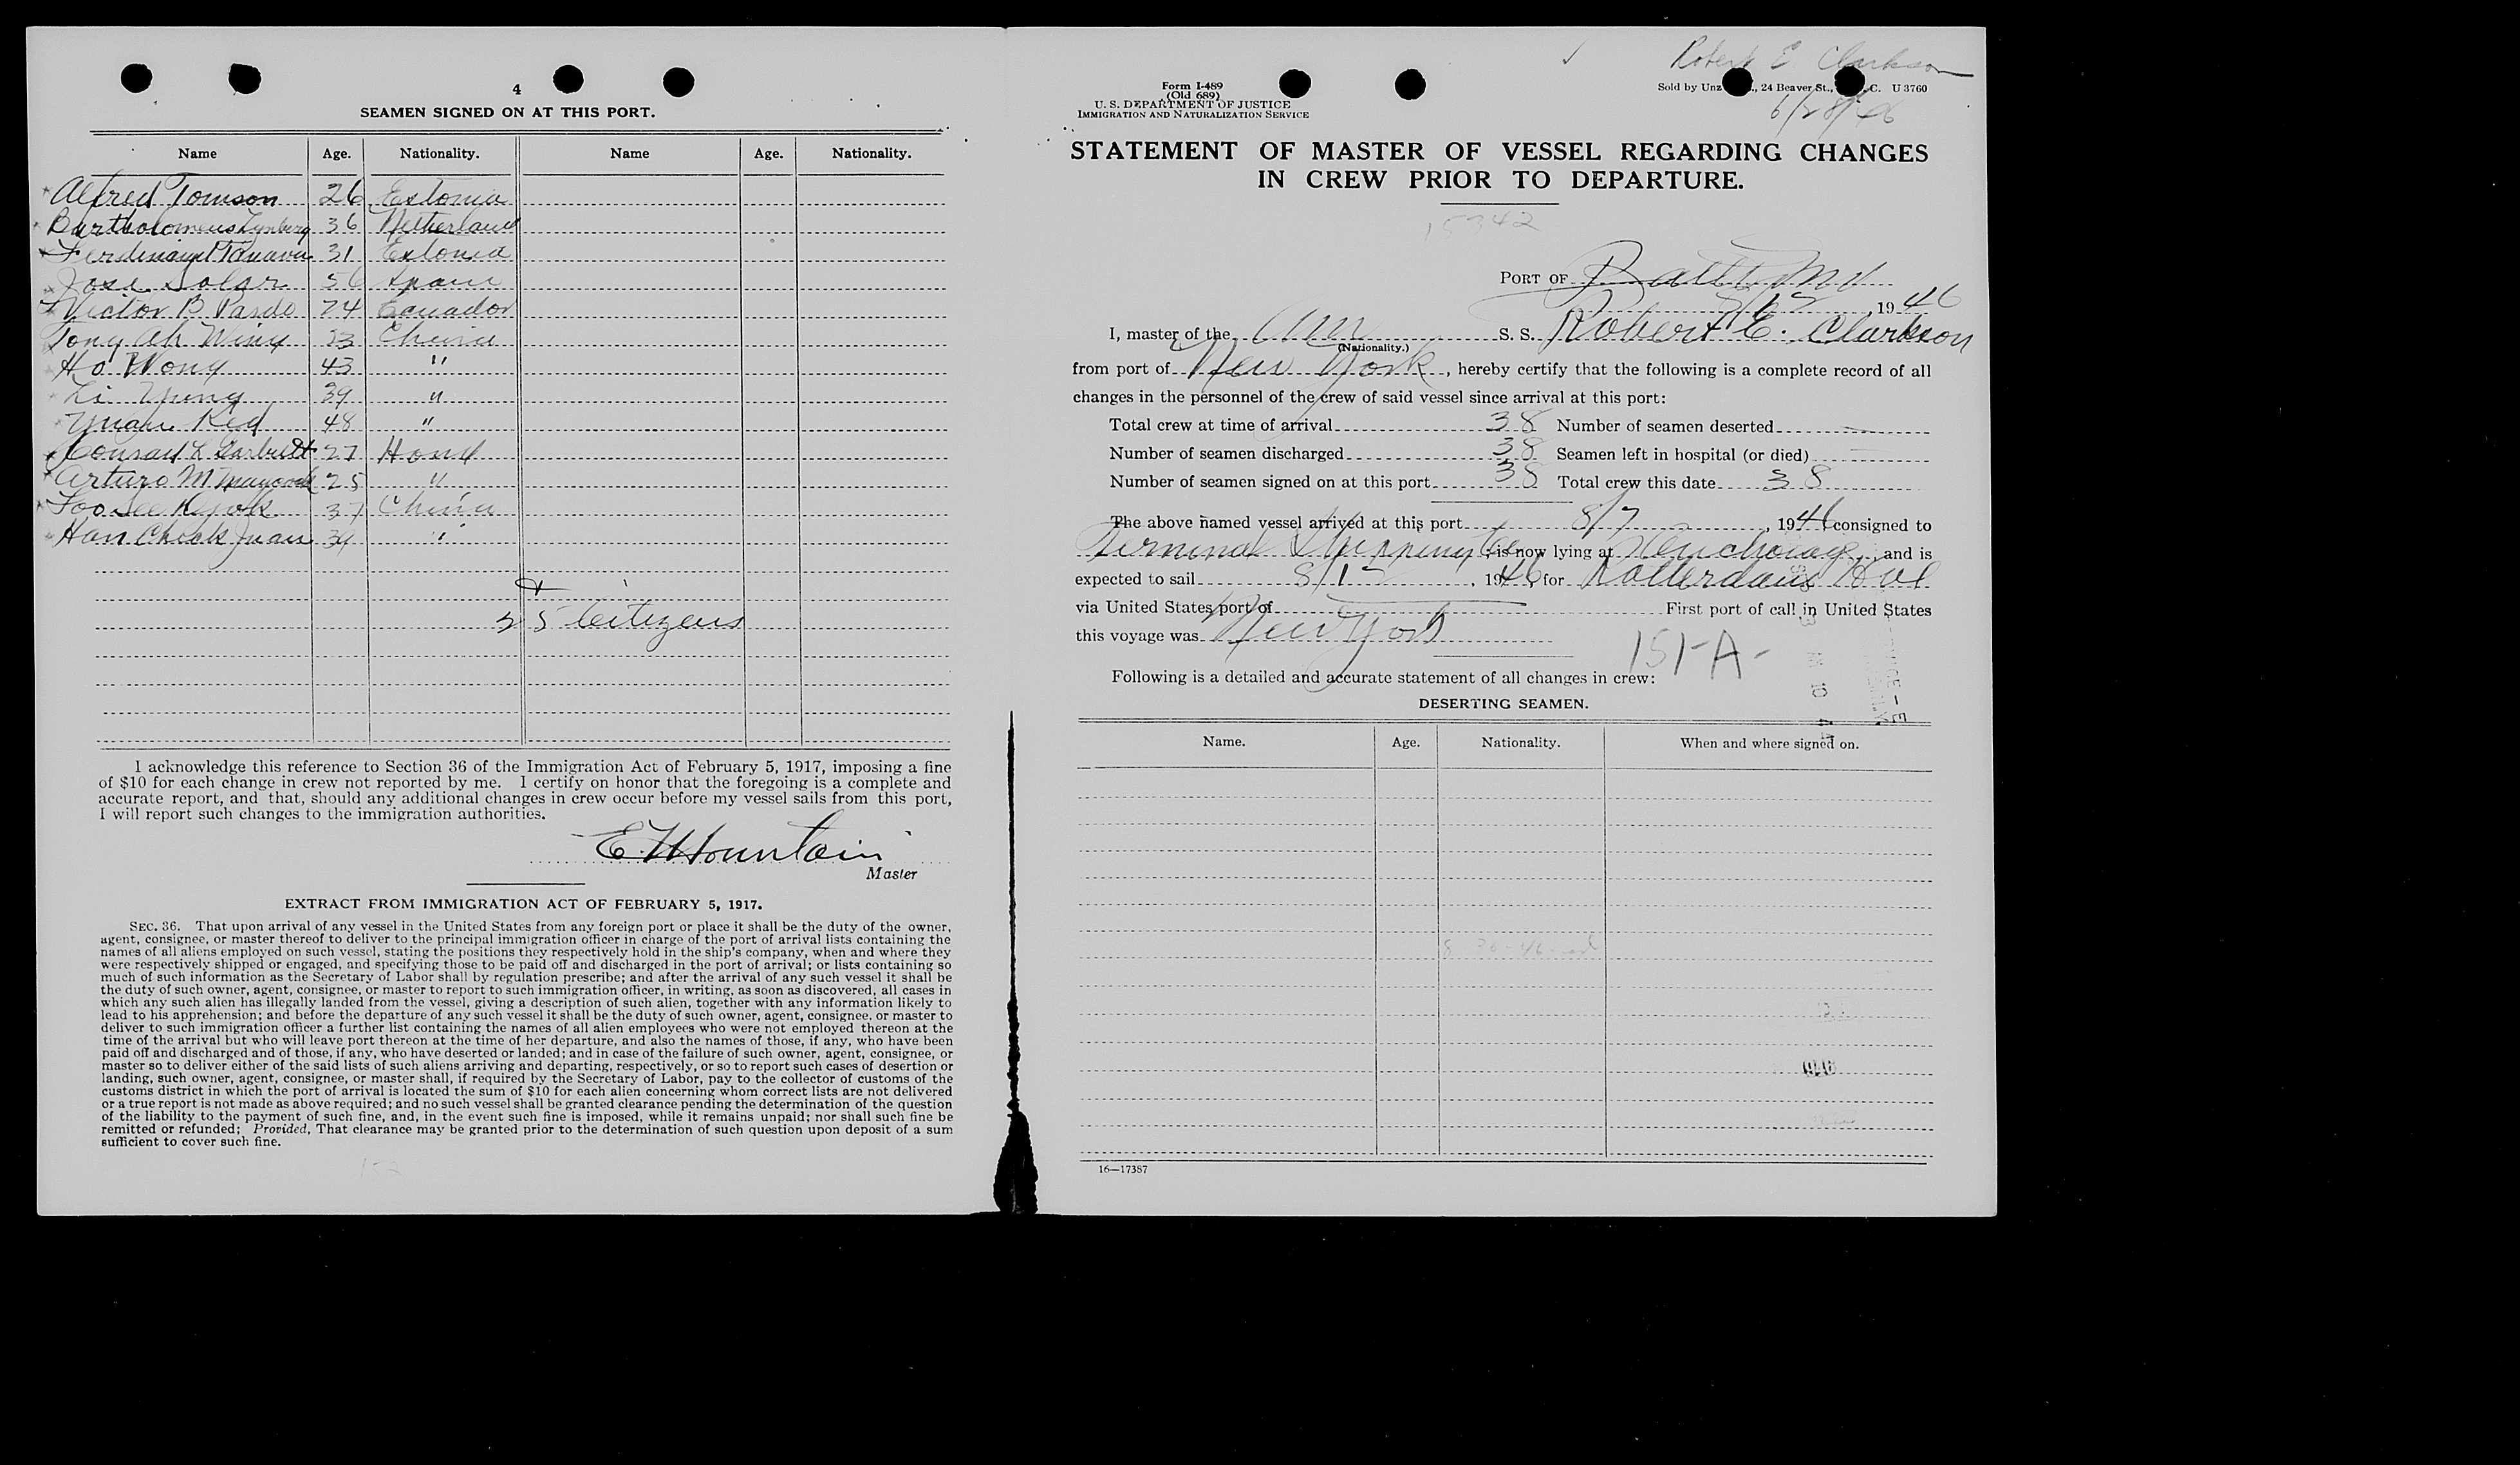 4
SEAMEN SIGNED ON AT THIS PORT.
Name Age. Nationality. Name Age. Nationality.
Alfred Tomson 26 Estonia
Bartholomeus 36 Netherland
Ferdinand 31 Estonia
Jose Solar 56 Spain
Victor B Pardo 24 Ecuador
Tong Ah Wing 23 China
Ho Wong 43 "
Li Yung 39 "
Yuan Ked 48 "
Conrad L Garbutt 27 Hond
Arturo M 25 "
Foo See 37 China
Han Chick Juan 39 "
+
25 Citizens
I acknowledge this reference to Section 36 of the Immigration Act of February 5, 1917, imposing a fine
of $10 for each change in crew not reported by me. I certify on honor that the foregoing is a complete and
accurate report, and that, should any additional changes in crew occur before my vessel sails from this port,
I will report such changes to the immigration authorities.
E Mountain
Master
EXTRACT FROM IMMIGRATION ACT OF FEBRUARY 5, 1917.
SEC. 36. That upon arrival of any vessel in the United States from any foreign port or place it shall be the duty of the owner,
agent, consignee, or master thereof to deliver to the principal immigration officer in charge of the port of arrival lists containing the
names of all aliens employed on such vessel, stating the positions they respectively hold in the ship's company, when and where they
were respectively shipped or engaged, and specifying those to be paid off and discharged in the port of arrival; or lists containing so
much of such information as the Secretary of Labor shall by regulation prescribe; and after the arrival of any such vessel it shall be
the duty of such owner, agent, consignee, or master to report to such immigration officer, in writing, as soon as discovered, all cases in
which any such alien has illegally landed from the vessel, giving a description of such alien, together with any information likely to
lead to his apprehension; and before the departure of any such vessel it shall be the duty of such owner, agent, consignee, or master to
deliver to such immigration officer a further list containing the names of all alien employees who were not employed thereon at the
time of the arrival but who will leave port thereon at the time of her departure, and also the names of those, if any, who have been
paid off and discharged and of those, if any, who have deserted or landed; and in case of the failure of such owner, agent, consignee, or
master so to deliver either of the said lists of such aliens arriving and departing, respectively, or so to report such cases of desertion or
landing, such owner, agent, consignee, or master shall, if required by the Secretary of Labor, pay to the collector of customs of the
customs district in which the port of arrival is located the sum of $10 for each alien concerning whom correct lists are not delivered
or a true report is not made as above required; and no such vessel shall be granted clearance pending the determination of the question
of the liability to the payment of such fine, and, in the event such fine is imposed, while it remains unpaid; nor shall such fine be
remitted or refunded; Provided, That clearance may be granted prior to the determination of such question upon deposit of a sum
sufficient to cover such fine.
152
Robert E Clarkson
Form I-489
(Old 689)
U. S. DEPARTMENT OF JUSTICE
IMMIGRATION AND NATURALIZATION SERVICE
Sold by Unz , 24 Beaver St., C. U 3760
6/28/46
STATEMENT OF MASTER OF VESSEL REGARDING CHANGES
IN CREW PRIOR TO DEPARTURE.
15342
PORT OF Balto Md
8/12, 1946
I, master of the Am S. S. Robert E. Clarkson
(Nationality.)
from port of New York, hereby certify that the following is a complete record of all
changes in the personnel of the crew of said vessel since arrival at this port:
Total crew at time of arrival 38 Number of seamen deserted
Number of seamen discharged 38 Seamen left in hospital (or died)
Number of seamen signed on at this port 38 Total crew this date 38
The above named vessel arrived at this port 8/7, 1946 consigned to
Terminal Shipping Co is now lying at Anchorage, and is
expected to sail 8/12, 1946, for Rotterdam Hol
via United States port of First port of call in United States
this voyage was New York
151-A-
Following is a detailed and accurate statement of all changes in crew:
DESERTING SEAMEN.
Name. Age. Nationality. When and where signed on.
16—17387